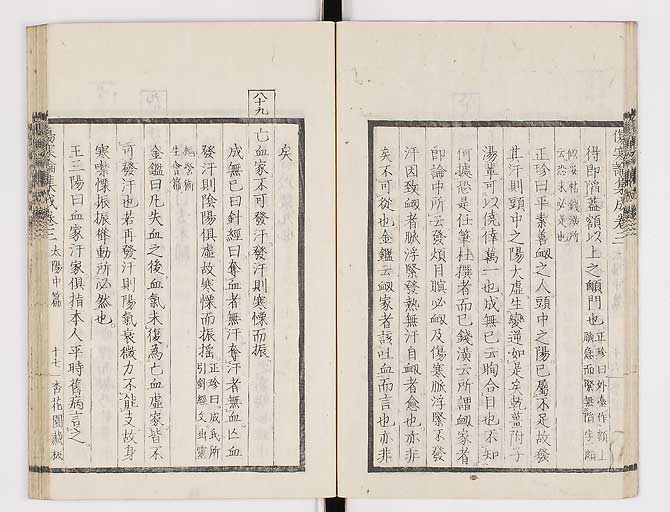 傷寒論集成卷三
得即陷蓋額以上之顖門也正珍曰外臺作額上
陷急而緊無脈字脈
似從枯錢潢所
云恐未必是也
正珍曰平素善衄之人頭中之陽已屬不足故發
其汗則頭中之陽大虛生變逆如是矣乾薑附子
湯輩可以僥倖萬一也成無已云眴合目也不知
何據恐是任筆杜撰者而已錢潢云所謂衄家者
即論中所云發煩目瞑必衄及傷寒脈浮緊不發
汗因致衄者脈浮緊發熱無汗自衄者愈也亦非
矣不可從也金鑑云衄家者該吐血而言也亦非
矣
八十九
亡血家不可發汗發汗則寒慄而振
成無已曰針經曰奪血者無汗奪汗者無血亡血
發汗則陰陽俱虛故寒慄而振搖正珍曰成氏所
引針經文出靈
樞營衛
生會篇
金鑑曰凡失血之後血氣未復為亡血虛家皆不
可發汗也若再發汗則陽氣衰微力不能支故身
寒噤慄振振聳動所必然也
王三陽曰血家汗家俱指本人平時舊病言之
傷寒論集成卷三
太陽中篇
十七
杏花園藏板